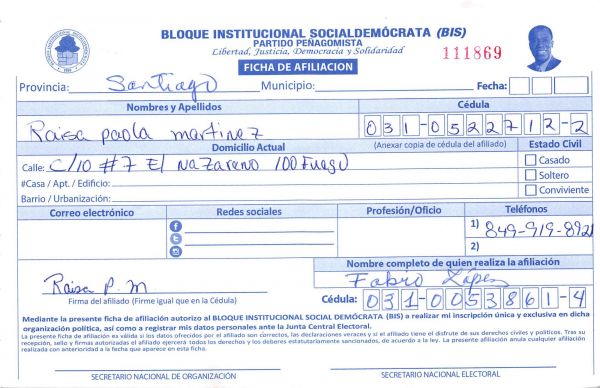 BLOQUE INSTITUCIONAL SOCIALDEMÓCRATA (BIS)
PARTIDO PEÑAGOMISTA
Libertad, Justicia, Democracia y Solidaridad
111869
FICHA DE AFILIACION
Provincia: Santiago Municipio: Fecha:
Nombres y Apellidos Cédula
Raisa paola martinez 031-0522712-2
Domicilio Actual (Anexar copia de cédula del afiliado) Estado Civil
Calle: C/10 #7 El Nazareno 100 Fuego Casado
#Casa / Apt. / Edificio: Soltero
Barrio / Urbanización: Conviviente
Correo electrónico Redes sociales Profesión/Oficio Teléfonos
1) 849-919-8921
2)
Nombre completo de quien realiza la afiliación
Raisa P. M Fabio López
Firma del afiliado (Firme igual que en la Cédula) Cédula: 031-0053861-4
Mediante la presente ficha de afiliación autorizo al BLOQUE INSTITUCIONAL SOCIAL DEMÓCRATA (BIS) a realizar mi inscripción única y exclusiva en dicha
organización política, así como a registrar mis datos personales ante la Junta Central Electoral.
La presente ficha de afiliación es válida si los datos ofrecidos por el afiliado son correctos, las declaraciones veraces y si el afiliado tiene el disfrute de sus derechos civiles y políticos. Tras su
recepción, sello y firmas autorizadas el afiliado ejercerá todos los derechos y los deberes estatutariamente sancionados, de acuerdo a la ley. La presente afiliación anula cualquier afiliación
realizada con anterioridad a la fecha que aparece en esta ficha.
SECRETARIO NACIONAL DE ORGANIZACIÓN SECRETARIO NACIONAL ELECTORAL